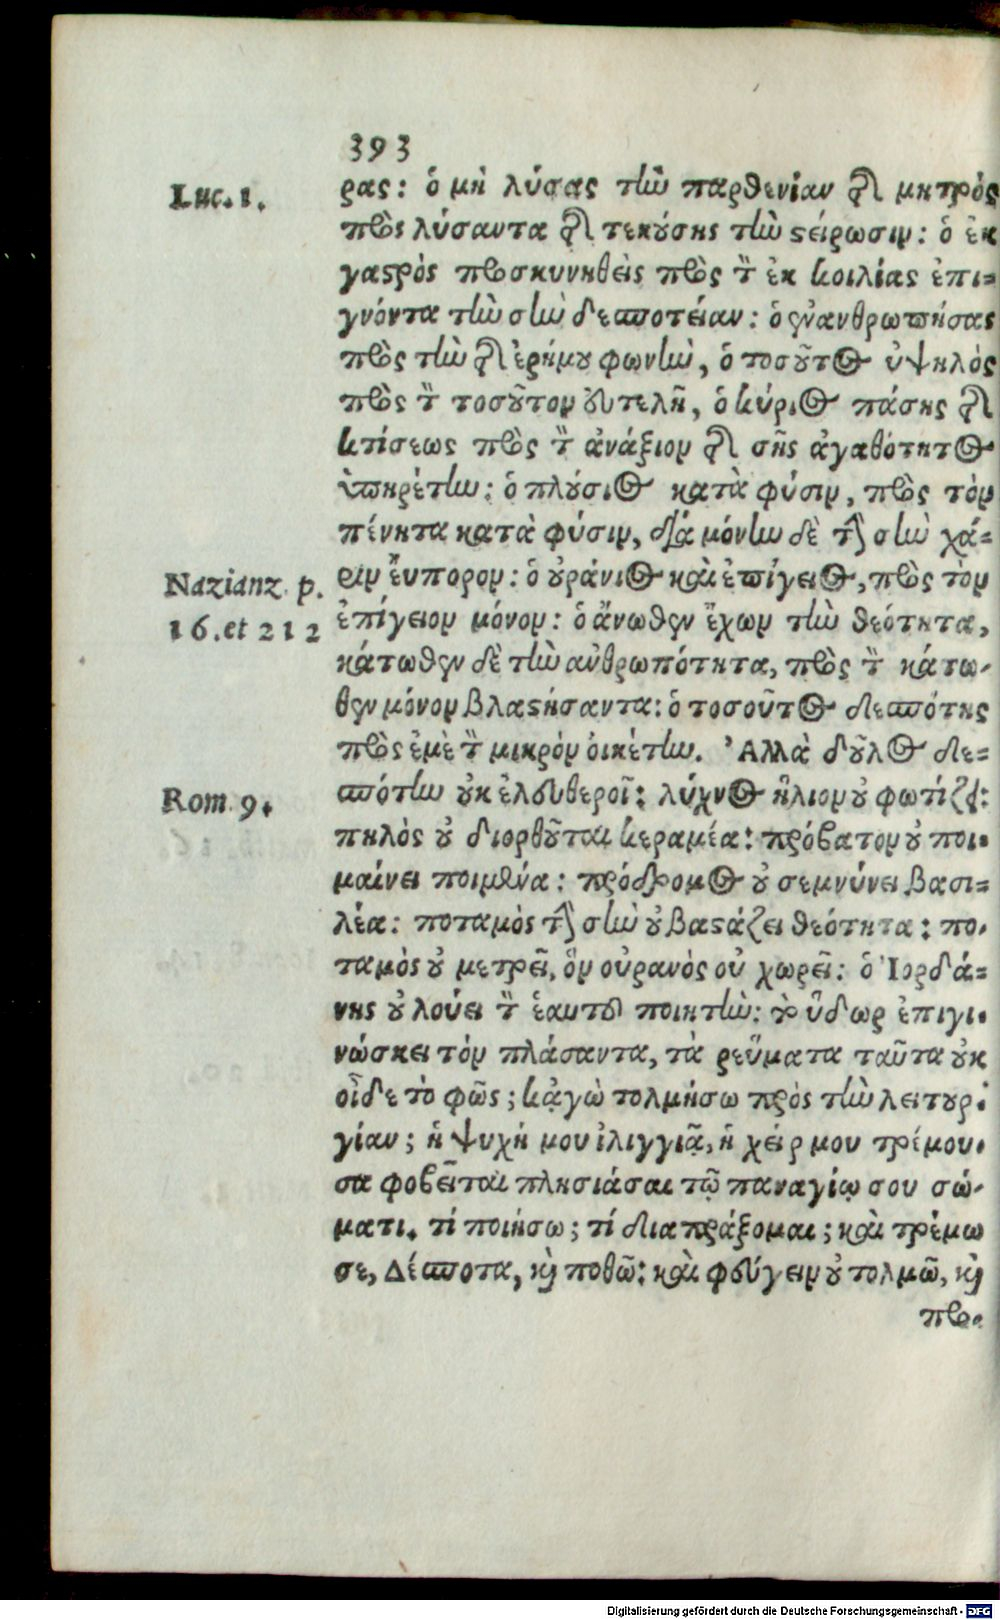 393
Luc. 1.
ρας: ὁ μὴ λύσας τὴν παρθενίαν τῆς μητρὸς
πρὸς λύσαντα τῆς τεκούσης τὴν στείρωσιν: ὁ ἐκ
γαστρὸς προσκυνηθεὶς πρὸς τὸν ἐκ κοιλίας ἐπι-
γνόντα τὴν σὴν δεσποτείαν: ὁ ἐνανθρωπήσας
πρὸς τὴν τῆς ἐρήμου φωνὴν, ὁ τοσοῦτος ὑψηλὸς
πρὸς τὸν τοσοῦτον εὐτελῆ, ὁ κύριος πάσης τῆς
κτίσεως πρὸς τὸν ἀνάξιον τῆς σῆς ἀγαθότητος
ὑπηρέτην: ὁ πλούσιος κατὰ φύσιν, πρὸς τὸν
πένητα κατὰ φύσιν, διὰ μόνην δὲ τὴν σὴν χά-
Nazianz. p.
16. et 212
ριν εὔπορον: ὁ οὐράνιος καὶ ἐπίγειος, πρὸς τὸν
ἐπίγειον μόνον: ὁ ἄνωθεν ἔχων τὴν θεότητα,
κάτωθεν δὲ τὴν ἀνθρωπότητα, πρὸς τὸν κάτω-
θεν μόνον βλαστήσαντα: ὁ τοσοῦτος δεσπότης
πρὸς ἐμὲ τὸν μικρὸν οἰκέτην. Ἀλλὰ δοῦλος δε-
Rom. 9.
σπότην οὐκ ἐλευθεροῖ: λύχνος ἥλιον οὐ φωτίζει:
πηλὸς οὐ διορθοῦται κεραμέα: πρόβατον οὐ ποι-
μαίνει ποιμένα: πρόδρομος οὐ σεμνύνει βασι-
λέα: ποταμὸς τὴν σὴν οὐ βαστάζει θεότητα: πο-
ταμὸς οὐ μετρεῖ, ὃν οὐρανὸς οὐ χωρεῖ: ὁ Ἰορδά-
νης οὐ λούει τὸν ἑαυτοῦ ποιητὴν: τὸ ὕδωρ ἐπιγι-
νώσκει τὸν πλάσαντα, τὰ ρεύματα ταῦτα οὐκ
οἶδε τὸ φῶς; κἀγὼ τολμήσω πρὸς τὴν λειτουρ-
γίαν; ἡ ψυχή μου ἰλιγγιᾷ, ἡ χείρ μου τρέμου-
σα φοβεῖται πλησιάσαι τῷ παναγίῳ σου σώ-
ματι. τί ποιήσω; τί διαπράξομαι; καὶ τρέμω
σε, Δέσποτα, καὶ ποθῶ: καὶ φεύγειν οὐ τολμῶ, καὶ
προ-
Digitalisierung gefördert durch die Deutsche Forschungsgemeinschaft - DFG